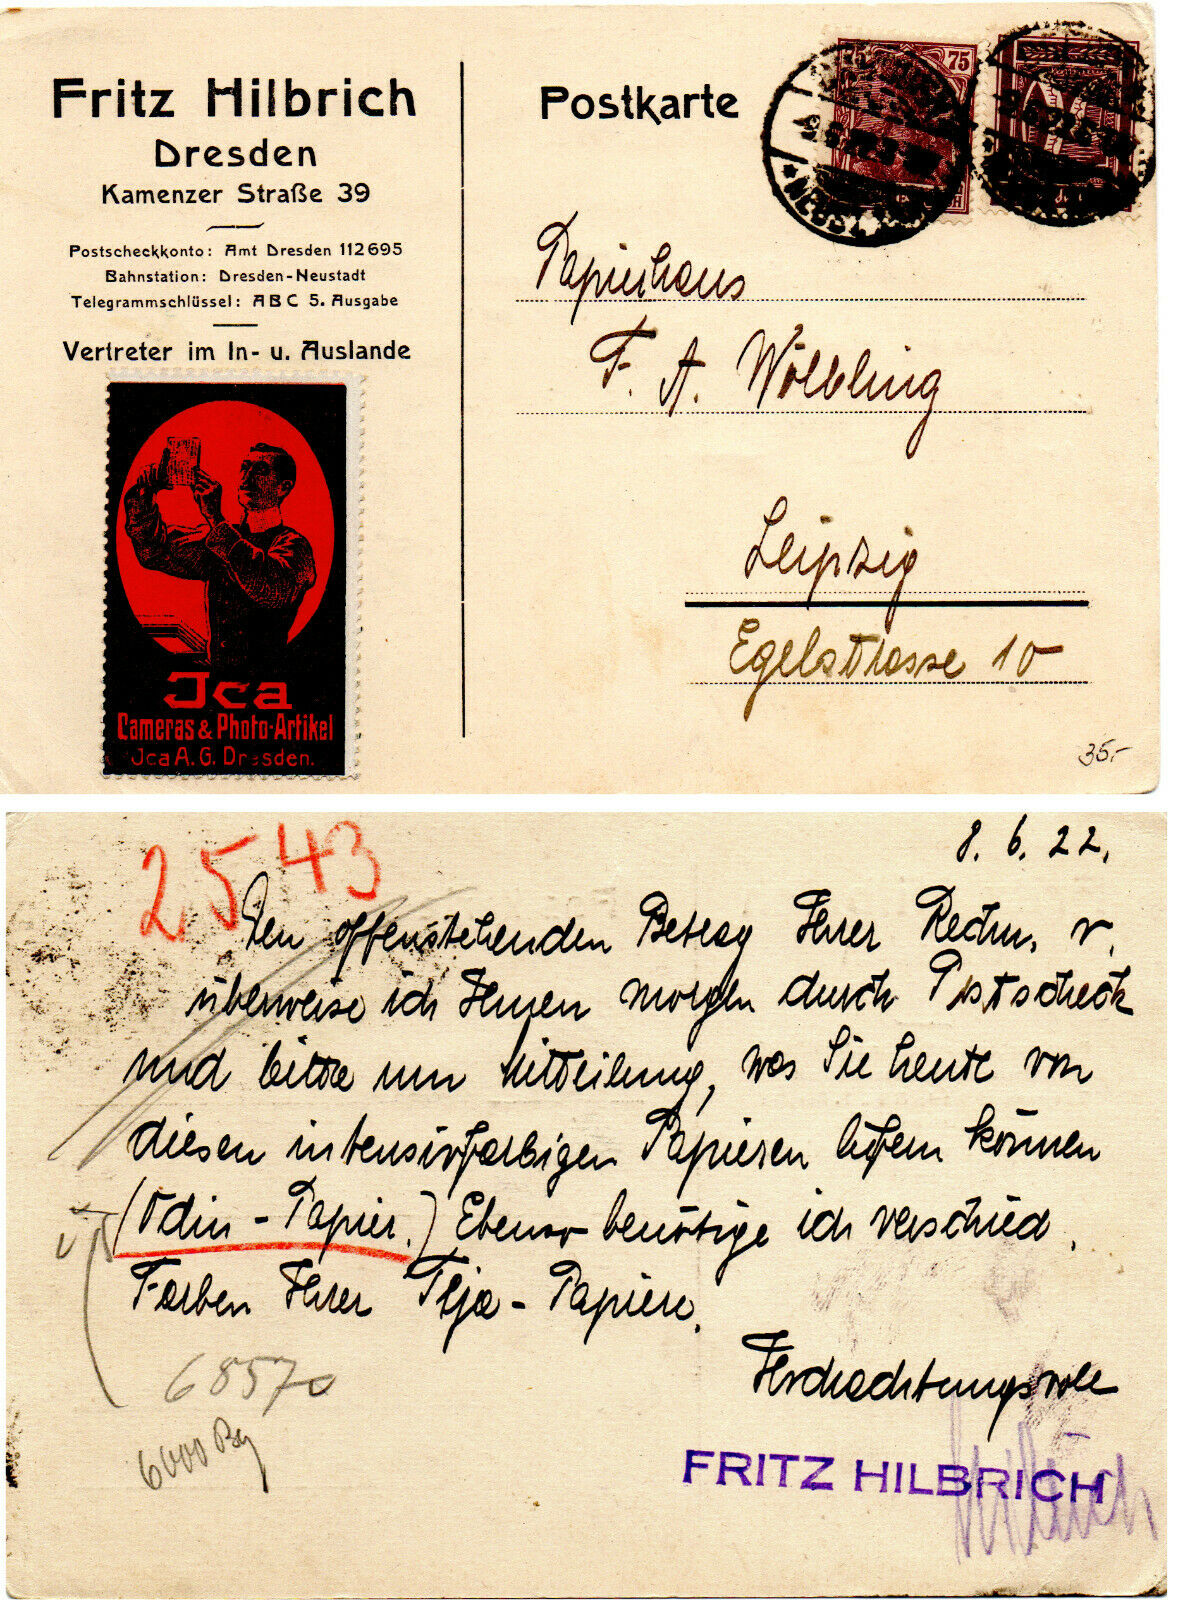 Fritz Hilbrich
Dresden
Kamenzer Straße 39
Postscheckkonto: Amt Dresden 112695
Bahnstation: Dresden-Neustadt
Telegrammschlüssel: ABC 5. Ausgabe
Vertreter im In- u. Auslande
Jca
Cameras & Photo-Artikel
Jca A. G. Dresden.
Postkarte
75 75
Papierhaus
F. A. Wölbling
Leipzig
Egelstrasse 10
35.-
2543
8. 6. 22.
Den offenstehenden Betrag Ihrer Rechn. v.
überweise ich Ihnen morgen durch Postscheck
und bitte um Mitteilung, was Sie heute von
diesen intensivfarbigen Papieren liefern können
(Odin-Papier.) Ebenso benötige ich verschied.
Farben Ihrer Papiere.
Hochachtungsvoll
FRITZ HILBRICH
68570
6000 Bg